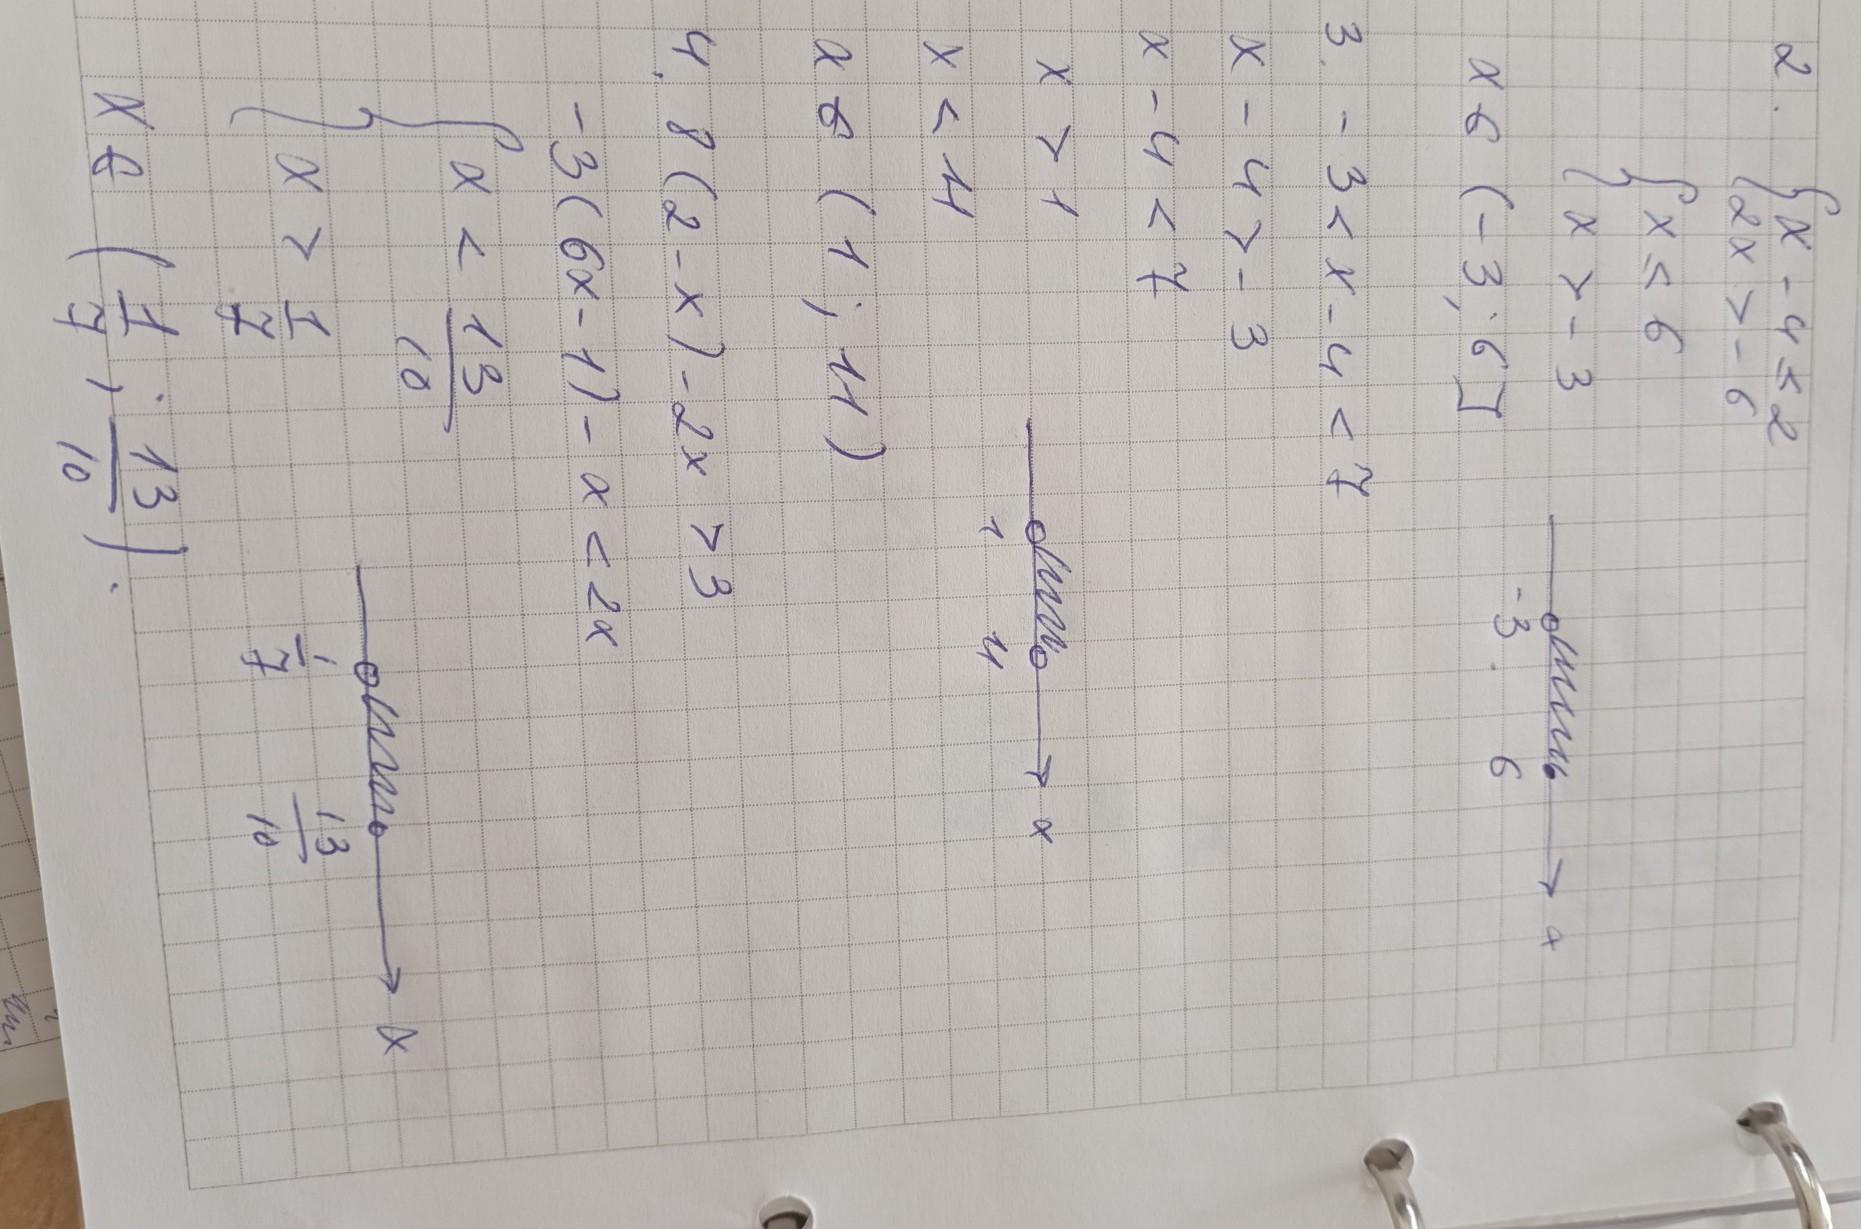 2. { x - 4 ≤ 2
{ 2x > - 6
{ x ≤ 6
{ x > - 3
-3 6 x
x ∈ (-3; 6]
3. - 3 < x - 4 < 7
x - 4 > - 3
x - 4 < 7
x > 1
1 11 x
x < 11
x ∈ (1; 11)
4. 8(2-x) - 2x > 3
-3(6x-1) - x < 2x
{ x < 13/10
{ x > 1/7
1/7 13/10 x
x ∈ (1/7; 13/10).